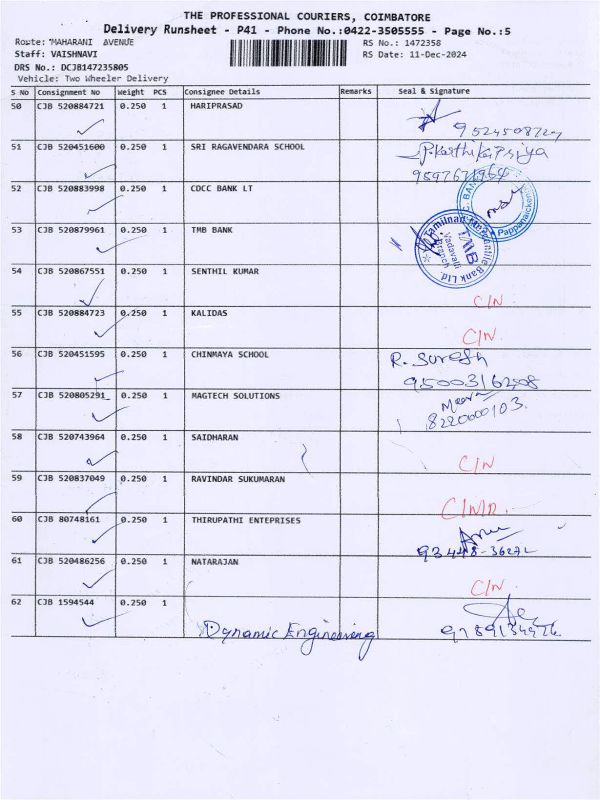 THE PROFESSIONAL COURIERS, COIMBATORE
Delivery Runsheet - P41 - Phone No.:0422-3505555 - Page No.:5
Route: MAHARANI AVENUE RS No.: 1472358
Staff: VAISHNAVI RS Date: 11-Dec-2024
DRS No.: DCJB147235805
Vehicle: Two Wheeler Delivery
S No Consignment No Weight PCS Consignee Details Remarks Seal & Signature
50 CJB 520884721 0.250 1 HARIPRASAD
51 CJB 520451600 0.250 1 SRI RAGAVENDARA SCHOOL P.Karthikapriya
52 CJB 520883998 0.250 1 CDCC BANK LT
Pappanaicken
53 CJB 520879961 0.250 1 TMB BANK
Tamilnad Mercantile Bank Ltd.
TMB
Vadavalli
Branch
54 CJB 520867551 0.250 1 SENTHIL KUMAR C/N
55 CJB 520884723 0.250 1 KALIDAS C/N
56 CJB 520451595 0.250 1 CHINMAYA SCHOOL R. Suresh
9500316208
57 CJB 520805291_ 0.250 1 MAGTECH SOLUTIONS
8220000103.
58 CJB 520743964 0.250 1 SAIDHARAN C/N
59 CJB 520837049 0.250 1 RAVINDAR SUKUMARAN
60 CJB 80748161 0.250 1 THIRUPATHI ENTEPRISES
61 CJB 520486256 0.250 1 NATARAJAN C/N
62 CJB 1594544 0.250 1
Dynamic Engineering